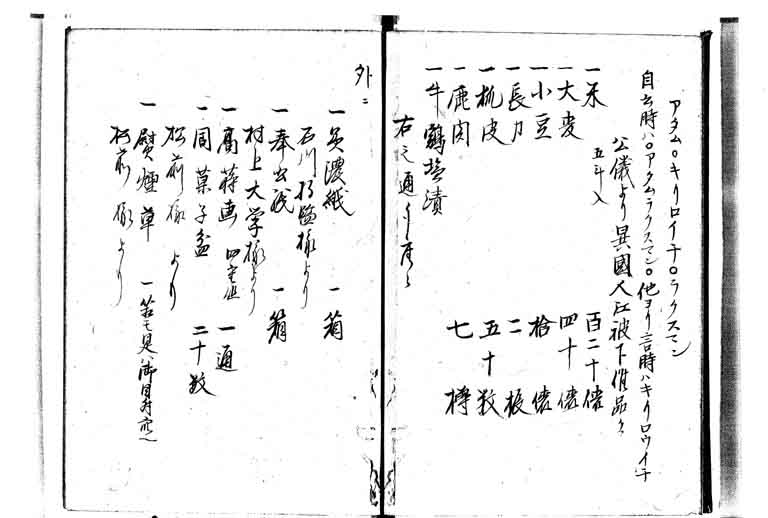 アタム○キリロイチ○ラクスマン
自云時ハ○アタムラクスマン○他ヨリ言時ハキリロウイチ
公儀より異國人江被下候品々
五斗入
一米 百二十俵
一大麦 四十俵
一小豆 拾俵
一長刀 二振
一紙皮 五十枚
一鹿肉
一牛 塩漬 七樽
右之通
外ニ
一美濃紙 一箱
石川将監様より
一奉書紙 一箱
村上大学様より
一高蒔画 一通
一同菓子盆 二十枚
松前様より
一 煙草 一箱
松前様より